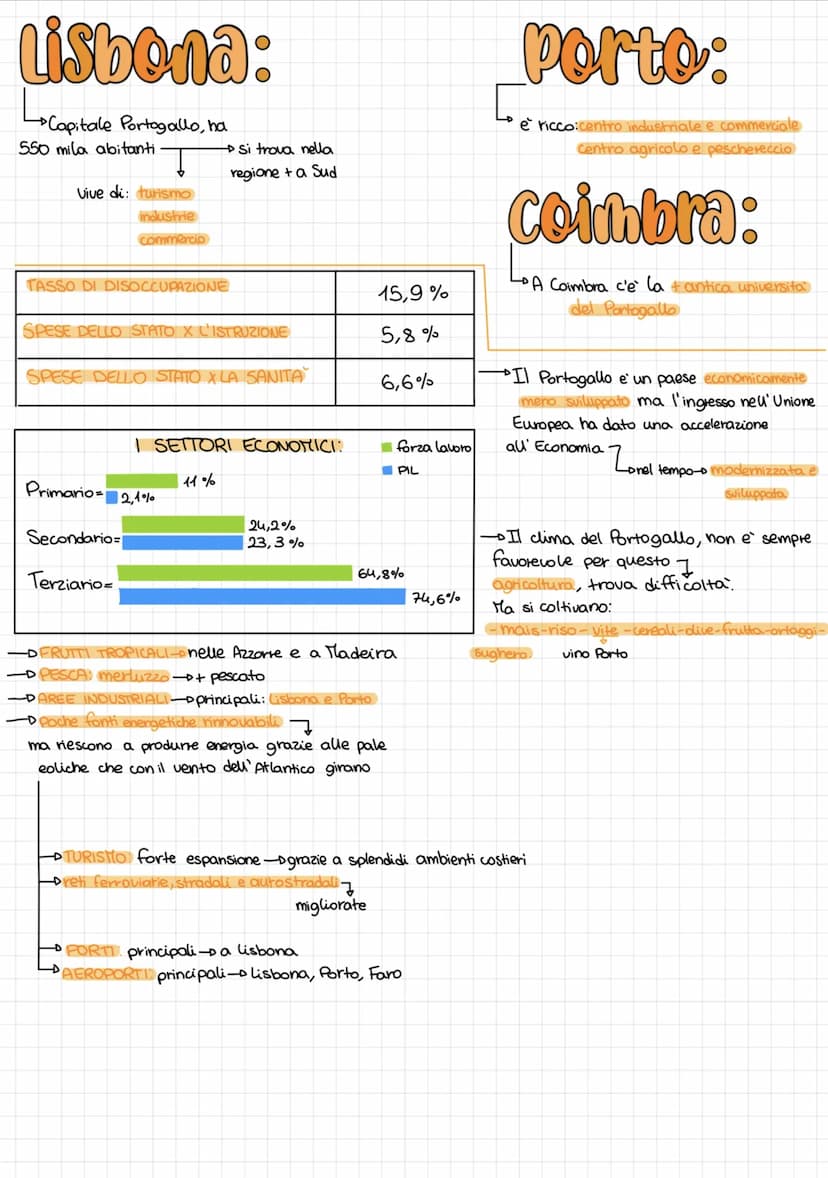 Lisbona:
Capitale Portogallo, ha
550 mila abitanti
si trova nella
regione + a Sud
Vive di: turismo
industrie
commercio
Porto:
è ricco: centro industriale e commerciale
centro agricolo e peschereccio
Coimbra:
A Coimbra c'è la + antica università
del Portogallo
TASSO DI DISOCCUPAZIONE 15,9%
SPESE DELLO STATO X L'ISTRUZIONE 5,8%
SPESE DELLO STATO X LA SANITÀ 6,6%
I SETTORI ECONOMICI:
forza lavoro
PIL
Primario= 11%
2,1%
Secondario= 24,2%
23,3%
Terziario= 64,8%
74,6%
Il Portogallo è un paese economicamente
meno sviluppato ma l'ingresso nell'Unione
Europea ha dato una accelerazione
all'Economia
nel tempo modernizzata e
sviluppata
Il clima del Portogallo, non è sempre
favorevole per questo
agricoltura, trova difficoltà.
Ma si coltivano:
-mais-riso-vite-cereali-olive-frutta-ortaggi-
sughero. vino Porto
FRUTTI TROPICALI nelle Azzorre e a Madeira
PESCA: merluzzo + pescato
AREE INDUSTRIALI principali: Lisbona e Porto
Poche fonti energetiche rinnovabili
ma riescono a produrre energia grazie alle pale
eoliche che con il vento dell'Atlantico girano
TURISMO: forte espansione grazie a splendidi ambienti costieri
reti ferroviarie, stradali e autostradali
migliorate
PORTI: principali a Lisbona
AEROPORTI: principali Lisbona, Porto, Faro